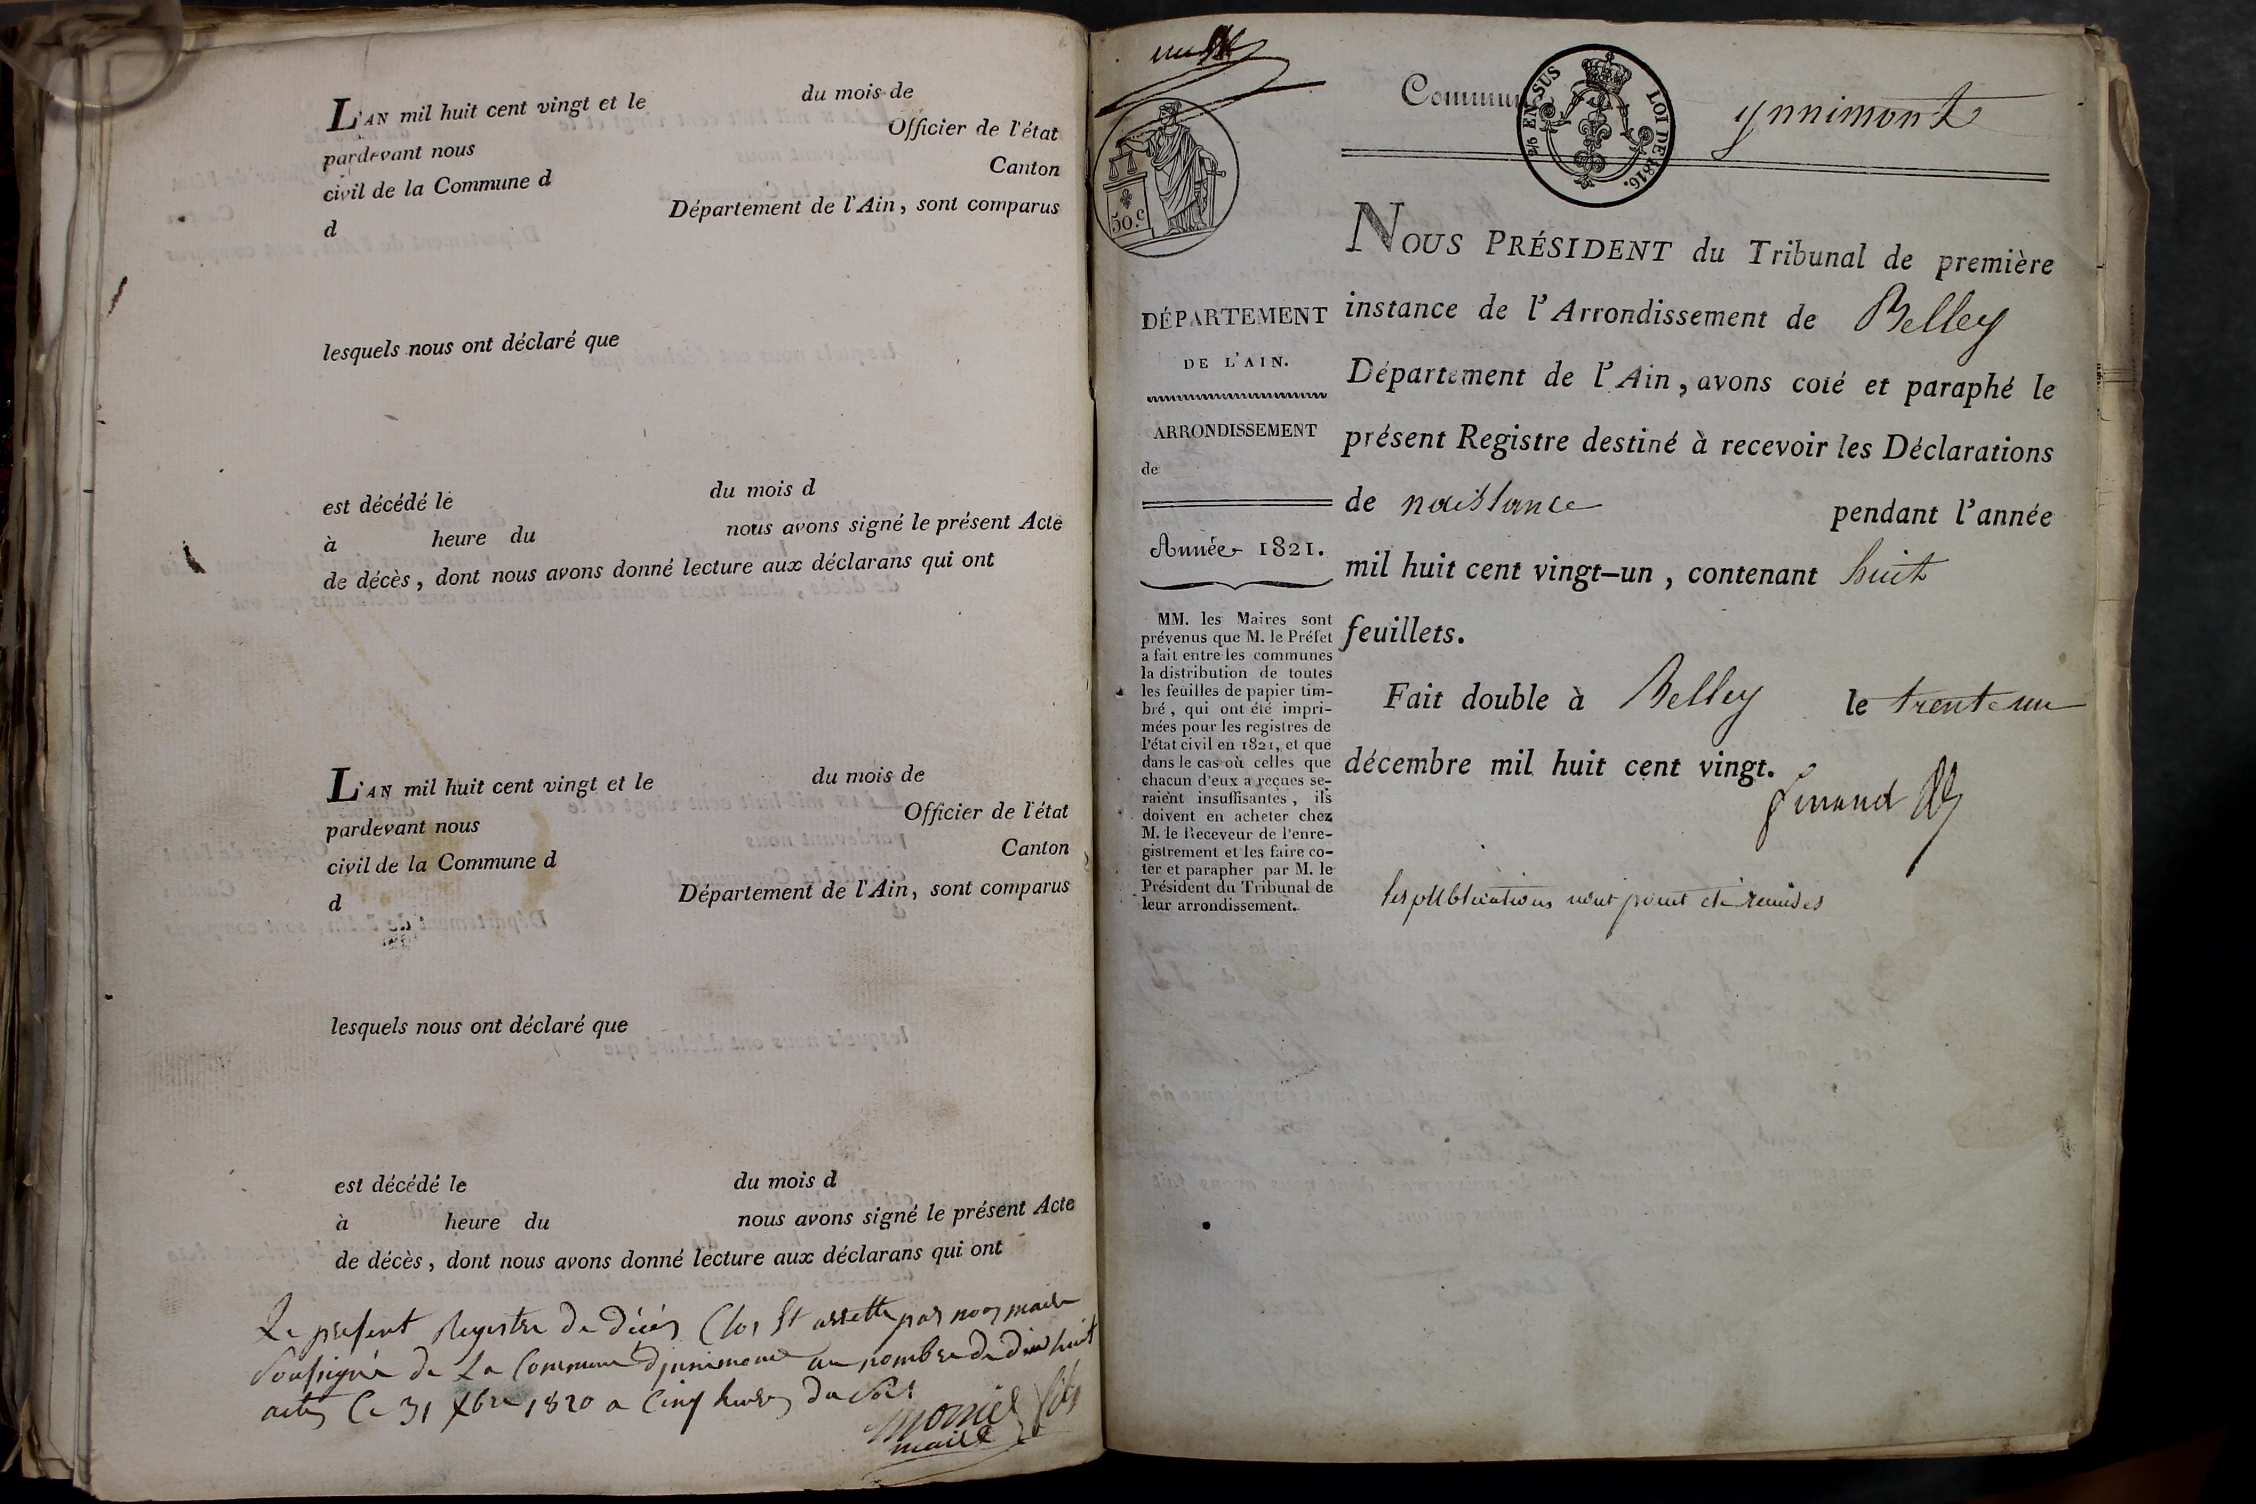 L'AN mil huit cent vingt et le du mois de
pardevant nous Officier de l'état
civil de la Commune d Canton
d Département de l'Ain, sont comparus
lesquels nous ont déclaré que
est décédé le du mois d
à heure du nous avons signé le présent Acte
de décès, dont nous avons donné lecture aux déclarans qui ont
L'AN mil huit cent vingt et le du mois de
pardevant nous Officier de l'état
civil de la Commune d Canton
d Département de l'Ain, sont comparus
lesquels nous ont déclaré que
est décédé le du mois d
à heure du nous avons signé le présent Acte
de décès, dont nous avons donné lecture aux déclarans qui ont
Le present Registre de décés Clos Et arretté par nous maire
Soussigné de La Commune au nombre de dix huit
actes Ce 31 Xbre 1820 a Cinq heures du Soir
maire
50.c
2/6 EN SUS LOI DE 1816.
Commune ynnimont
DÉPARTEMENT
DE L'AIN.
ARRONDISSEMENT
de
Année 1821.
MM. les Maires sont
prévenus que M. le Préfet
a fait entre les communes
la distribution de toutes
les feuilles de papier tim-
bré, qui ont été impri-
mées pour les registres de
l'état civil en 1821, et que
dans le cas où celles que
chacun d'eux a reçues se-
raient insuffisantes, ils
doivent en acheter chez
M. le Receveur de l'enre-
gistrement et les faire co-
ter et parapher par M. le
Président du Tribunal de
leur arrondissement.
NOUS PRÉSIDENT du Tribunal de première
instance de l'Arrondissement de Belley
Département de l'Ain, avons coté et paraphé le
présent Registre destiné à recevoir les Déclarations
de naissance pendant l'année
mil huit cent vingt-un, contenant huit
feuillets.
Fait double à Belley le trente un
décembre mil huit cent vingt.
les publications n'ont point été remises